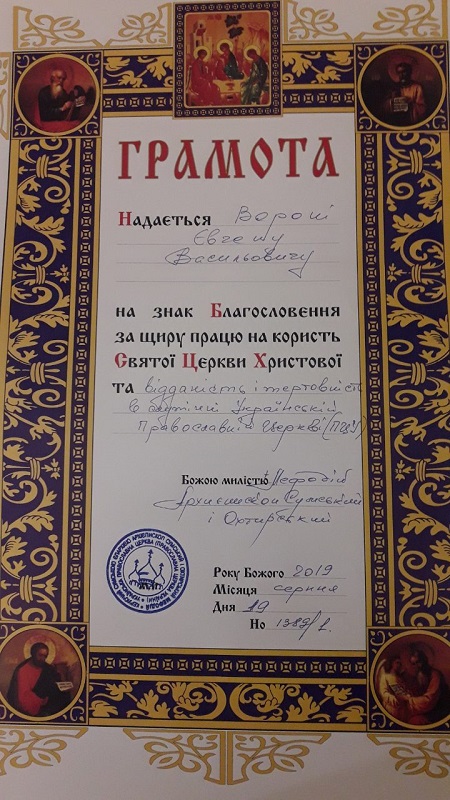 ГРАМОТА
Надається Вороні
Євгену
Васильовичу
на знак Благословення
за щиру працю на користь
Святої Церкви Христової
та відданість і жертовність
Українській
Православній Церкві (ПЦУ)
Божою милістю Мефодій
Архиєпископ Сумський
і Охтирський
Року Божого 2019
Місяця серпня
Дня 19
No